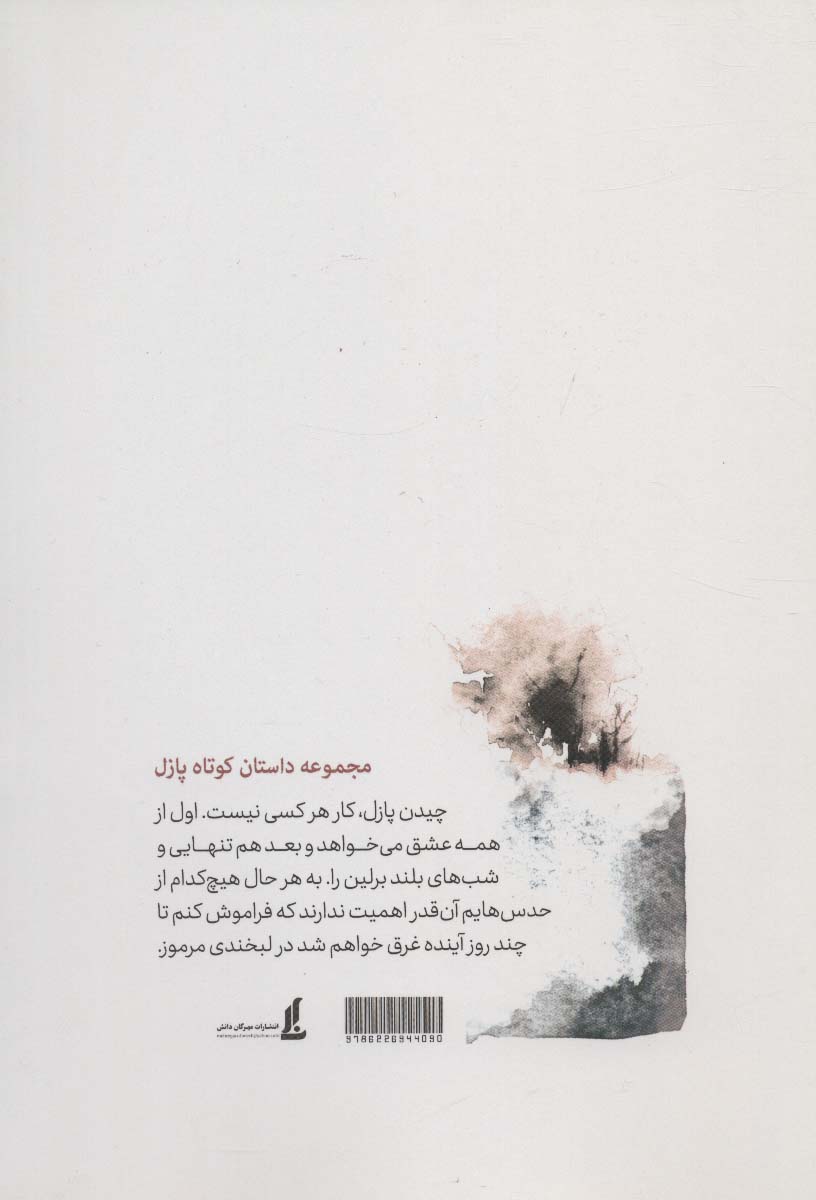 مجموعه داستان کوتاه پازل
چیدن پازل، کار هر کسی نیست. اول از
همـه عشق می‌خواهد و بعـد هم تنهـایی و
شب‌های بلند برلین را. به هر حال هیچ‌کدام از
حدس‌هایم آن‌قدر اهمیت ندارند که فراموش کنم تا
چند روز آینده غرق خواهم شد در لبخندی مرموز.
انتشارات مهرگان دانش
9786226944090